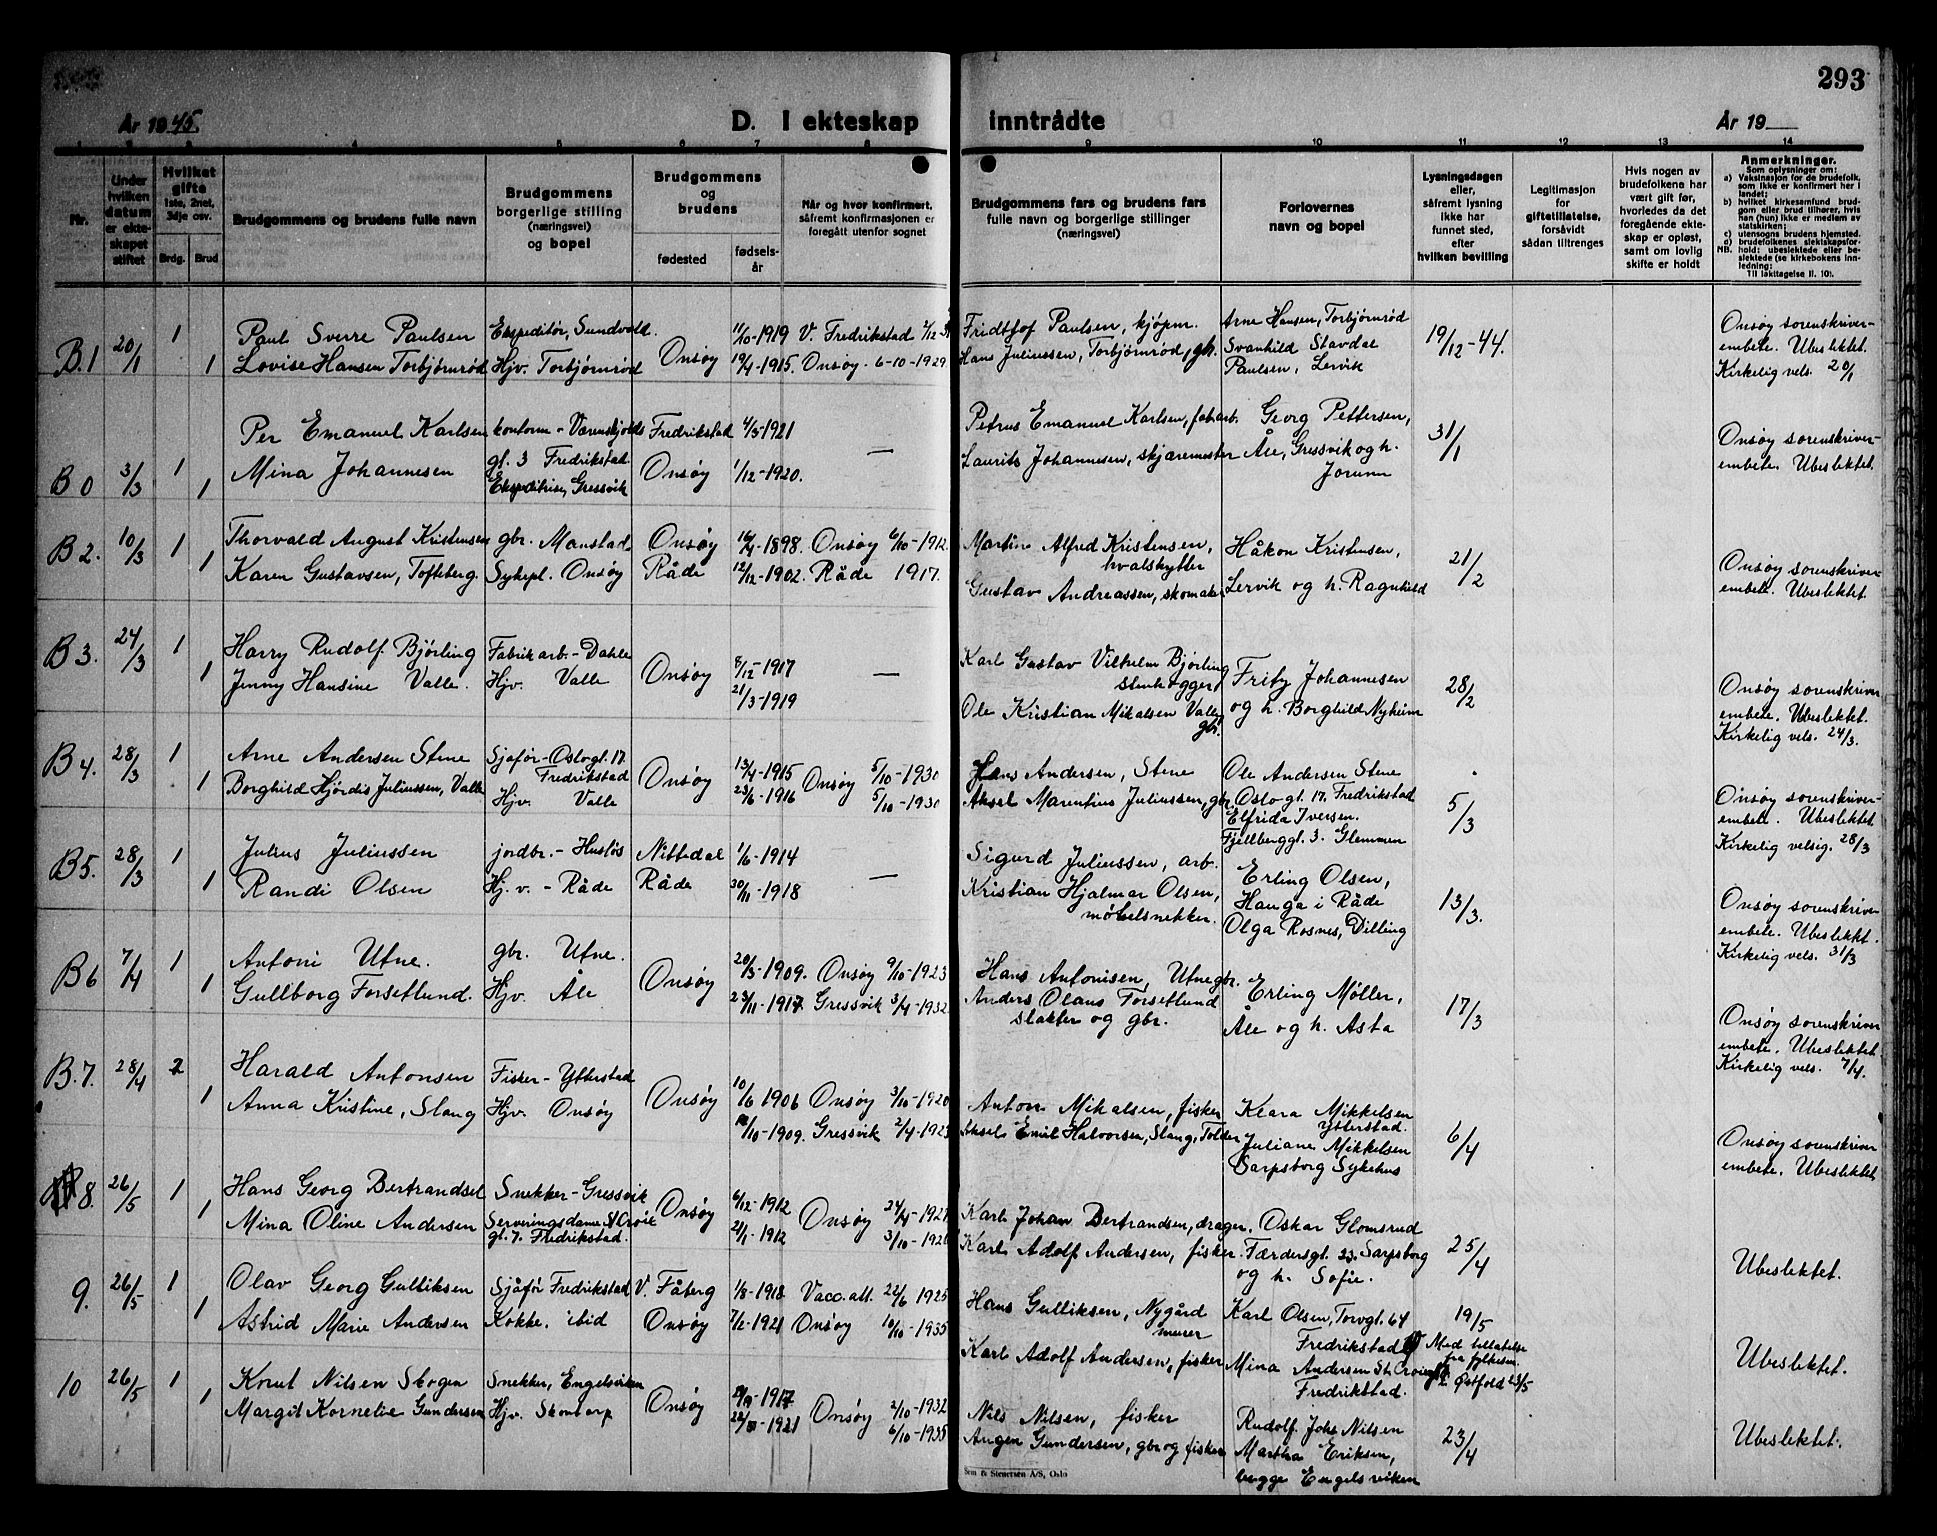 293
År 1945.
D. I ekteskap inntrådte
År 19
1 2 3 4 5 6 7 8 9 10 11 12 13 14
Nr.
Under hvilken datum er ekteskapet stiftet
Hvilket gifte 1ste, 2net, 3dje osv.
Brdg. Brud
Brudgommens og brudens fulle navn
Brudgommens borgerlige stilling (næringsvei) og bopel
Brudgommens og brudens
fødested
fødselsår
Når og hvor konfirmert, såfremt konfirmasjonen er foregått utenfor sognet
Brudgommens fars og brudens fars fulle navn og borgerlige stillinger (næringsvei)
Forlovernes navn og bopel
Lysningsdagen eller, såfremt lysning ikke har funnet sted, efter hvilken bevilling
Legitimasjon for giftetillatelse, forsåvidt sådan tiltrenges
Hvis nogen av brudefolkene har vært gift før, hvorledes da det foregående ekteskap er opløst, samt om lovlig skifte er holdt
Anmerkninger.
Som oplysninger om:
a) Vaksinasjon for de brudefolk, som ikke er konfirmert her i landet;
b) hvilket kirkesamfund brudgom eller brud tilhører, hvis han (hun) ikke er medlem av statskirken;
c) utensogns brudens hjemsted.
d) brudefolkenes slektskapsforhold: ubeslektede eller beslektede (se kirkebokens innledning:
NB. Til iakttagelse II. 10).
B.1 20/1 1 Paul Sverre Paulsen Ekspeditør, Sundvold. 11/10-1919 V. Fredrikstad Fridtjof Paulsen, kjøpm. Arne Hansen, Torbjørnrød 19/12-44. Onsøy sorenskriver-
1 Lovise Hansen Torbjørnrød Hjv. Torbjørnrød Onsøy 19/4-1915. Onsøy. 6-10-1929 Hans Juliussen, Torbjørnrød, gb. Svanhild Stavdal embete. Ubeslektet.
Paulsen, Lervik Kirkelig vels. 20/1
B 0 3/3 1 Per Emanuel Karlsen kontorm - Værenskjolds Fredrikstad 4/5-1921 — Petrus Emanuel Karlsen, fab.arb. Georg Pettersen, 31/1 Onsøy sorenskriver-
gl. 3 Fredrikstad
1 Mina Johannesen Ekspeditrise, Gressvik Onsøy 1/12-1920. Laurits Johannesen, skjæremester Åle, Gressvik og h. embete. Ubeslektet.
Jorunn
B 2. 10/3 1 Thorvald August Kristensen gbr. Manstad. Onsøy 16/4-1898. Onsøy 6/10-1912. Martin Alfred Kristensen, Håkon Kristensen, 21/2 Onsøy sorenskriver-
hvalskytter
1 Karen Gustavsen, Tofteberg Sykepl. Onsøy Råde 12/12-1902. Råde 1917. Gustav Andreassen, skomaker Lervik og h. Ragnhild embete. Ubeslektet.
B 3. 24/3 1 Harry Rudolf Bjørling Fabrikarb.- Dahle Onsøy 8/12-1917 — Karl Gustav Vilhelm Bjørling Fritz Johannesen 28/2 Onsøy sorenskriver
stenhogger
1 Jenny Hansine Valle. Hjv. Valle 21/3-1919 Ole Kristian Mikalsen Valle gbr. og h. Borghild Nyheim embete. Ubeslektet.
Kirkelig vels. 24/3.
B 4. 28/3 1 Arne Andersen Stene Sjåfør-Oslogt. 17. Fredrikstad Onsøy 13/4-1915 Onsøy 5/10-1930 Hans Andersen, Stene Ole Andersen Stene 5/3 Onsøy sorenskriver-
1 Borghild Hjørdis Juliussen, Valle Hjv. Valle 23/6-1916 5/10-1930 Aksel Marentius Juliussen, gbr. Oslogt. 17. Fredrikstad embete. Ubeslektet
Elfrida Iversen. Kirkelig velsig. 28/3
Fjellberggt. 3. Glemmen
B5. 28/3 1 Julius Juliussen jordbr.- Husløs Nittedal 1/6-1914 — Sigurd Juliussen, arb. Erling Olsen, 13/3. Onsøy sorenskriver
1 Randi Olsen Hj.v. - Råde Råde 30/11-1918 Kristian Hjalmar Olsen, møbelsnekker. Hauga i Råde embete. Ubeslektet.
Olga Rosnes, Dilling Kirkelig vels. 31/3
B6 7/4 1 Antoni Utne. gbr. Utne. Onsøy 20/3-1909. Onsøy 9/10-1923 Hans Antonisen, Utne gbr. Erling Møller, 17/3 Onsøy sorenskriver
1 Gullborg Forsetlund. Hjv. Åle 23/11-1917. Gressvik 3/4-1932. Anders Olaus Forsetlund slakter og gbr. Åle og h. Asta embete. Ubeslektet
Kirkelig vels. 7/4.
B.7. 28/4 2 Harald Antonsen Fisker-Ytterstad Onsøy 10/6 1906 Onsøy 3/10-1920 Anton Mikalsen, fisker Klara Mikkelsen Ytterstad. 6/4 Onsøy sorenskriver
1 Anna Kristine, Slang Hjv. Onsøy /10-1909. Gressvik 2/4-1923 Aksel Emil Halvorsen, Slang, Tolder Juliane Mikkelsen embete. Ubeslektet
Sarpsborg Sykehus
8. 26/5 1 Hans Georg Bertrandsen Snekker-Gressvik Onsøy 6/12-1912 Onsøy 24/4-1927 Karl Johan Bertrandsen, drager. Oskar Glomsrud 25/4 Ubeslektet.
1 Mina Oline Andersen Serveringsdame St Croix gt. 7. Fredrikstad. 21/1-1912 3/10-1926 Karl Adolf Andersen, fisker. Færdersgt. 23. Sarpsborg
og h. Sofie.
9. 26/5 1 Olav Georg Gulliksen Sjåfør Fredrikstad V. Fåberg 1/8-1918 Vacc.att. 22/6 1925 Hans Gulliksen, Nygård murer Karl Olsen, Torvgt. 64 Fredrikstad 19/5 Ubeslektet.
1 Astrid Marie Andersen Kokke. ibid Onsøy 7/2-1921 Onsøy 10/10-1935 Karl Adolf Andersen, fisker Mina Andersen St. Croixgt. Fredrikstad. Med tillatelse fra fylkesm. i Østfold 23/5
10 26/5 1 Knut Nilsen Skogen Snekker, Engelsviken Onsøy -1917 Onsøy 2/10-1932 Nils Nilsen, fisker Rudolf Johs Nilsen 23/4 Ubeslektet.
1 Margit Kornelie Gundersen Hjv. Skontorp -1921 6/10-1935 Angen Gundersen, gbr og fisker Martha Eriksen,
begge Engelsviken
Sem & Stenersen A/S, Oslo